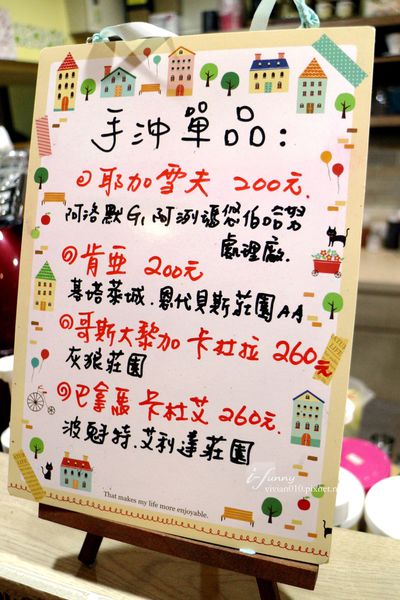 手沖單品:
①耶加雪夫 200元.
阿洛默G1阿洌禮悠伯哈努
處理廠.
②肯亞 200元
基塔華城.恩代貝斯莊園AA
③哥斯大黎加 卡杜拉 260元
灰狼莊園
④巴拿馬 卡杜艾 260元.
波魁特.艾利達莊園
That makes my life more enjoyable.
i-funny
vivian010.pixnet.n